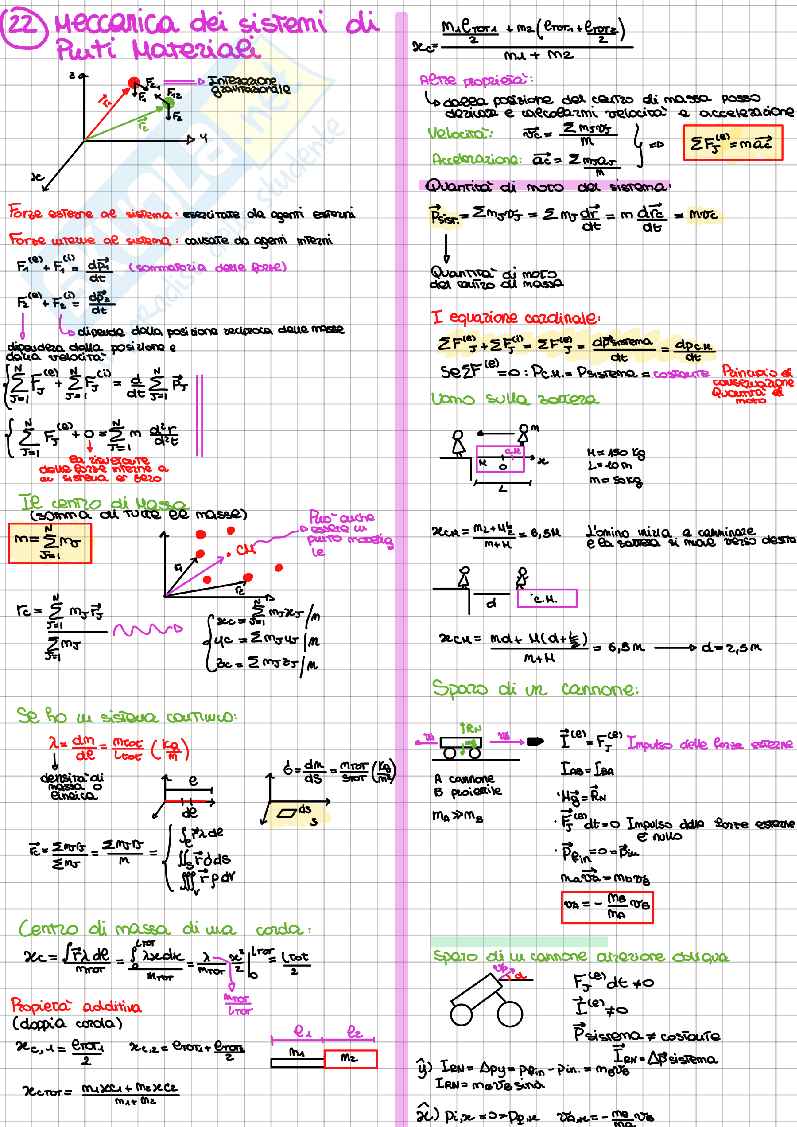 22 Meccanica dei sistemi di
Punti Materiali
z
y
x
r₁
r₂
F₂₁
F₁
F₁₂
F₂
⇒ Interazione
gravitazionale
Forze esterne al sistema: esercitate da agenti esterni
Forze interne al sistema: causate da agenti interni
F₁^(e) + F₁^(i) = dp₁/dt (sommatoria delle forze)
F₂^(e) + F₂^(i) = dp₂/dt
dipende dalla posizione reciproca delle masse
dipenderà dalla posizione e
dalla velocità
Σ F_J^(e) + Σ F_J^(i) = d/dt Σ P_J
Σ F_J^(e) + 0 = Σ m d²r/d²t
la risultante
delle forze interne a
un sistema è zero
Il centro di Massa
(somma di tutte le masse)
m = Σ m_J
CM
Può anche
essere un
punto
r_c = Σ m_J r_J / Σ m_J
x_c = Σ m_J x_J / M
y_c = Σ m_J y_J / M
z_c = Σ m_J z_J / M
Se ho un sistema continuo:
λ = dm/dl = m_TOT/L_TOT (kg/m)
densità di
massa o
lineica
l
dl
σ = dm/ds = m_TOT/S_TOT (kg/m²)
ds
s
r_c = Σ m_J r_J / Σ m_J = Σ m_J r_J / M =
∫ r λ dl
∬ r σ ds
∭ r ρ dV
Centro di massa di una corda:
x_c = ∫ r λ dl / m_TOT = ∫₀^L_TOT λ x dx / m_TOT = λ/m_TOT x²/2 |₀^L_TOT = L_TOT/2
m_TOT/L_TOT
Propietà additiva
(doppia corda)
x_c,1 = l_TOT1/2 x_c,2 = l_TOT1 + l_TOT2/2
l₁ l₂
m₁ m₂
x_cTOT = m₁x_c1 + m₂x_c2 / m₁+m₂
x_c = m₁ l_TOT1/2 + m₂ (l_TOT1 + l_TOT2/2) / m₁ + m₂
Altre proprietà:
dalla posizione del centro di massa posso
derivare e calcolarmi velocità e accelerazione
Velocità: v_c = Σ m_J v_J / M
Accelerazione: a_c = Σ m_J a_J / M
⇒ Σ F_J^(e) = m a_c
Quantità di moto del sistema:
P_sist. = Σ m_J v_J = Σ m_J dr/dt = m dr_c/dt = m v_c
Quantità di moto
del centro di massa
I equazione cardinale:
Σ F_J^(e) + Σ F_J^(i) = Σ F_J^(e) = dp_sistema/dt = dp_C.M./dt
Se Σ F^(e) = 0 : P_C.M. = P_sistema = costante
Principio di
conservazione
Quantità di
moto
Uomo sulla zattera
m
C.M.
M
O
x
L
M = 150 kg
L = 10 m
m = 50 kg
x_CM = mL + M L/2 / m+M = 6,5 M
L'omino inizia a camminare
e la zattera si muove verso destra
d
C.M.
x_CM = md + M(d + L/2) / m+M = 6,5 M → d = 2,5 M
Sparo di un cannone:
R_N
A cannone
B proiettile
m_A ≫ m_B
I^(e) = F_J^(e) Impulso delle forze esterne
I_AB = I_BA
· Mg = R_N
· F_J^(e) dt = 0 Impulso delle forze esterne
è nullo
· P_fin = 0 = P_in
m_A v_A = m_B v_B
v_A = − m_B/m_A v_B
Sparo di un cannone direzione obliqua
v_B
α
F_J^(e) dt ≠ 0
I^(e) ≠ 0
P sistema ≠ costante
I_RN = ΔP sistema
ŷ) I_RN = Δp_y = p_fin − p_in. = m_B v_B
I_RN = m_B v_B sinα
x̂) p_i,x = 0 = p_f,x v_A,x = − m_B/m_A v_B